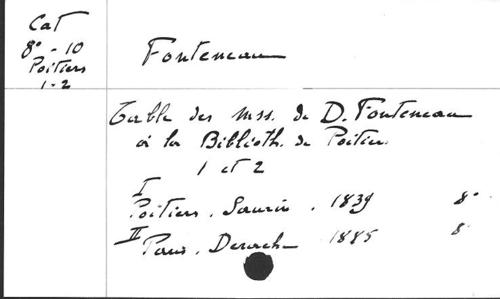 Cat
8° - 10
Poitiers
1-2
Fonteneau
Table des mss. de D. Fonteneau
à la Biblioth. de Poitiers
1 et 2
I
Poitiers. Saurin. 1839 8°
II
Paris. Derache 1885 8°